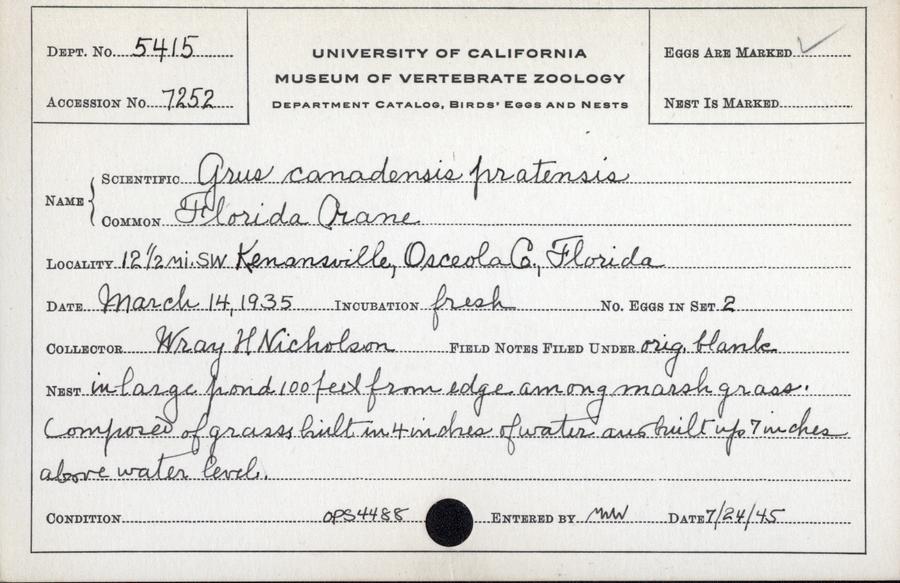 DEPT. NO. 5415
ACCESSION NO. 7252
UNIVERSITY OF CALIFORNIA
MUSEUM OF VERTEBRATE ZOOLOGY
DEPARTMENT CATALOG, BIRDS' EGGS AND NESTS
EGGS ARE MARKED ✓
NEST IS MARKED
NAME
SCIENTIFIC Grus canadensis pratensis
COMMON Florida Crane
LOCALITY 12 1/2 mi. SW Kenansville, Osceola Co., Florida
DATE March 14, 1935 INCUBATION fresh NO. EGGS IN SET 2
COLLECTOR Wray H Nicholson FIELD NOTES FILED UNDER orig. blank
NEST in large pond 100 feet from edge among marsh grass.
Composed of grass, built in 4 inches of water and built up 7 inches
above water level.
CONDITION OPS4488 ENTERED BY MW DATE 7/24/45